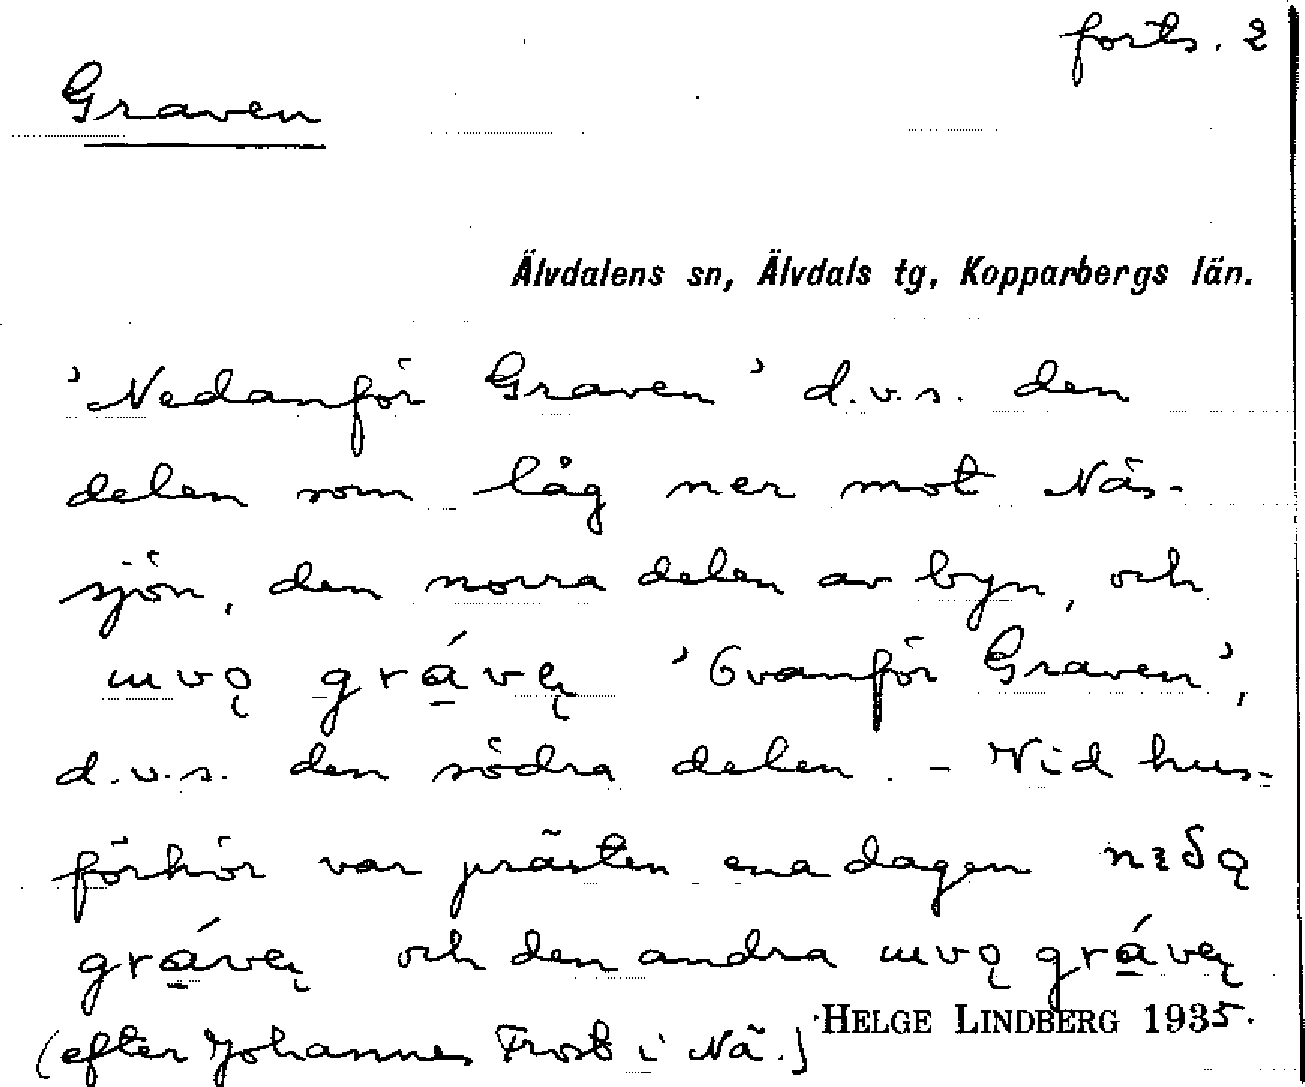 forts. 2
Graven
Älvdalens sn, Älvdals tg, Kopparbergs län.
'Nedanför Graven' d.v.s. den
delen som låg ner mot Näs-
sjön, den norra delen av byn, och
'Ovanför Graven',
d.v.s. den södra delen. - Vid hus-
förhör var prästen ena dagen
och den andra
(efter Johannes Frost i Nä.)
HELGE LINDBERG 1935.